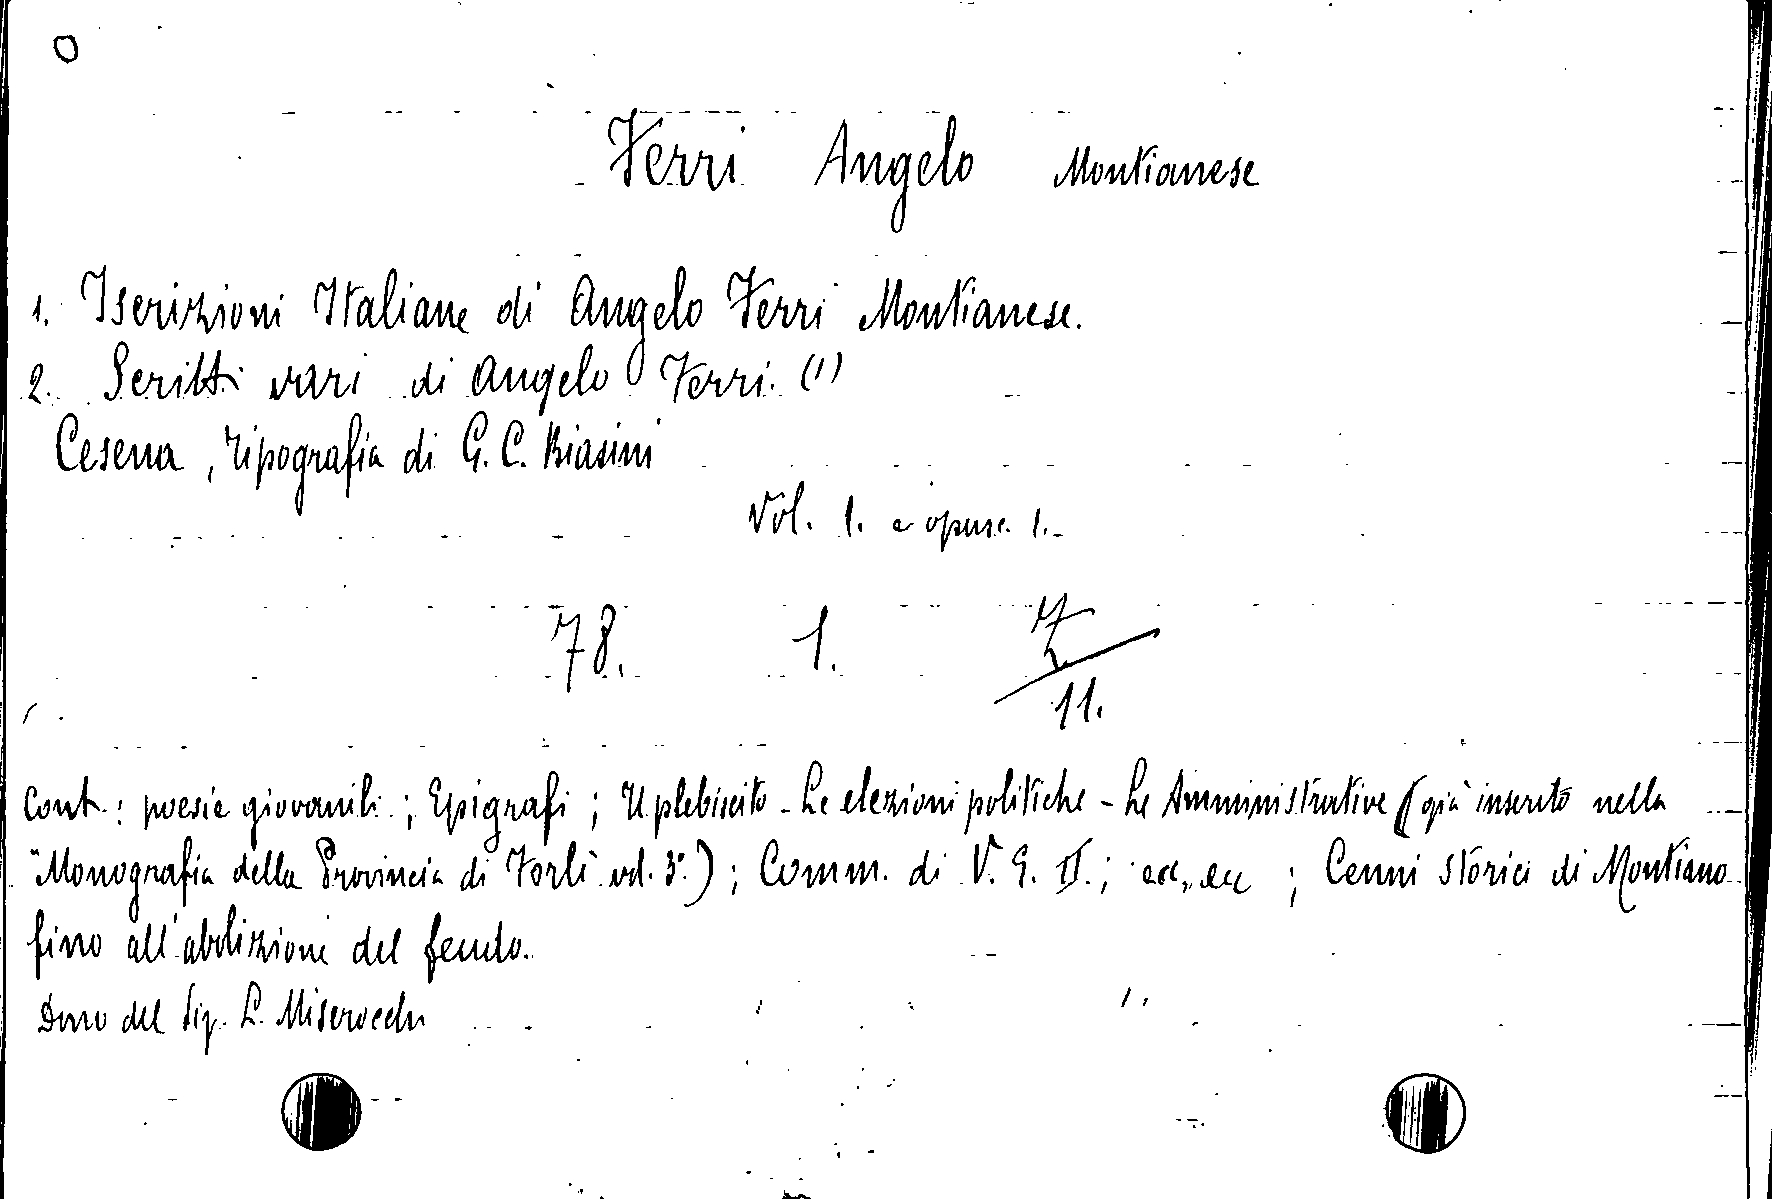 Ferri Angelo Montianese
1. Iscrizioni Italiane di Angelo Ferri Montianese.
2. Scritti vari di Angelo Ferri. (1)
Cesena, Tipografia di G. C. Biasini
Vol. 1. e opusc. 1.
78. 1.
11.
Cont.: poesie giovanili; Epigrafi; Il plebiscito - Le elezioni politiche - Le Amministrative (già inserito nella
"Monografia della Provincia di Forlì vol. 3°.); Comm. di V. E. II.; ecc, ecc; Cenni storici di Montiano
fino all'abolizione del feudo.
Dono del Sig. L. Miserocchi